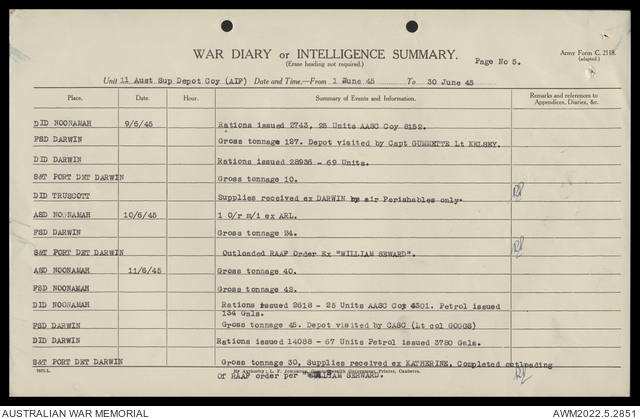 WAR DIARY or INTELLIGENCE SUMMARY.
(Erase heading not required.)
Page No 5.
Army Form C. 2118.
(adapted.)
Unit 11 Aust Sup Depot Coy (AIF) Date and Time.—From 1 June 45 To 30 June 45
Place. Date. Hour. Summary of Events and Information. Remarks and references to Appendices, Diaries, &c.
DID NOONAMAH 9/6/45 Rations issued 2743, 25 Units AASC Coy 8152.
FSD DARWIN Gross tonnage 127. Depot visited by Capt GUMMETTE Lt KELSEY.
DID DARWIN Rations issued 28936 - 69 Units.
S&T PORT DET DARWIN Gross tonnage 10.
DID TRUSCOTT Supplies received ex DARWIN by air Perishables only.
ASD NOONAMAH 10/6/45 1 O/r m/i ex ARL.
FSD DARWIN Gross tonnage 24.
S&T PORT DET DARWIN Outloaded RAAF Order Ex "WILLIAM SEWARD".
ASD NOONAMAH 11/6/45 Gross tonnage 40.
FSD NOONAMAH Gross tonnage 42.
DID NOONAMAH Rations issued 2618 - 25 Units AASC Coy 4301. Petrol issued
134 Gals.
FSD DARWIN Gross tonnage 45. Depot visited by CASC (Lt col GOGGS)
DID DARWIN Rations issued 14088 - 67 Units Petrol issued 3780 Gals.
S&T PORT DET DARWIN Gross tonnage 30, Supplies received ex KATHERINE. Completed outloading
By Authority: L. F. Government Printer, Canberra.
of RAAF order per SERWARD.
AUSTRALIAN WAR MEMORIAL
AWM2022.5.2851